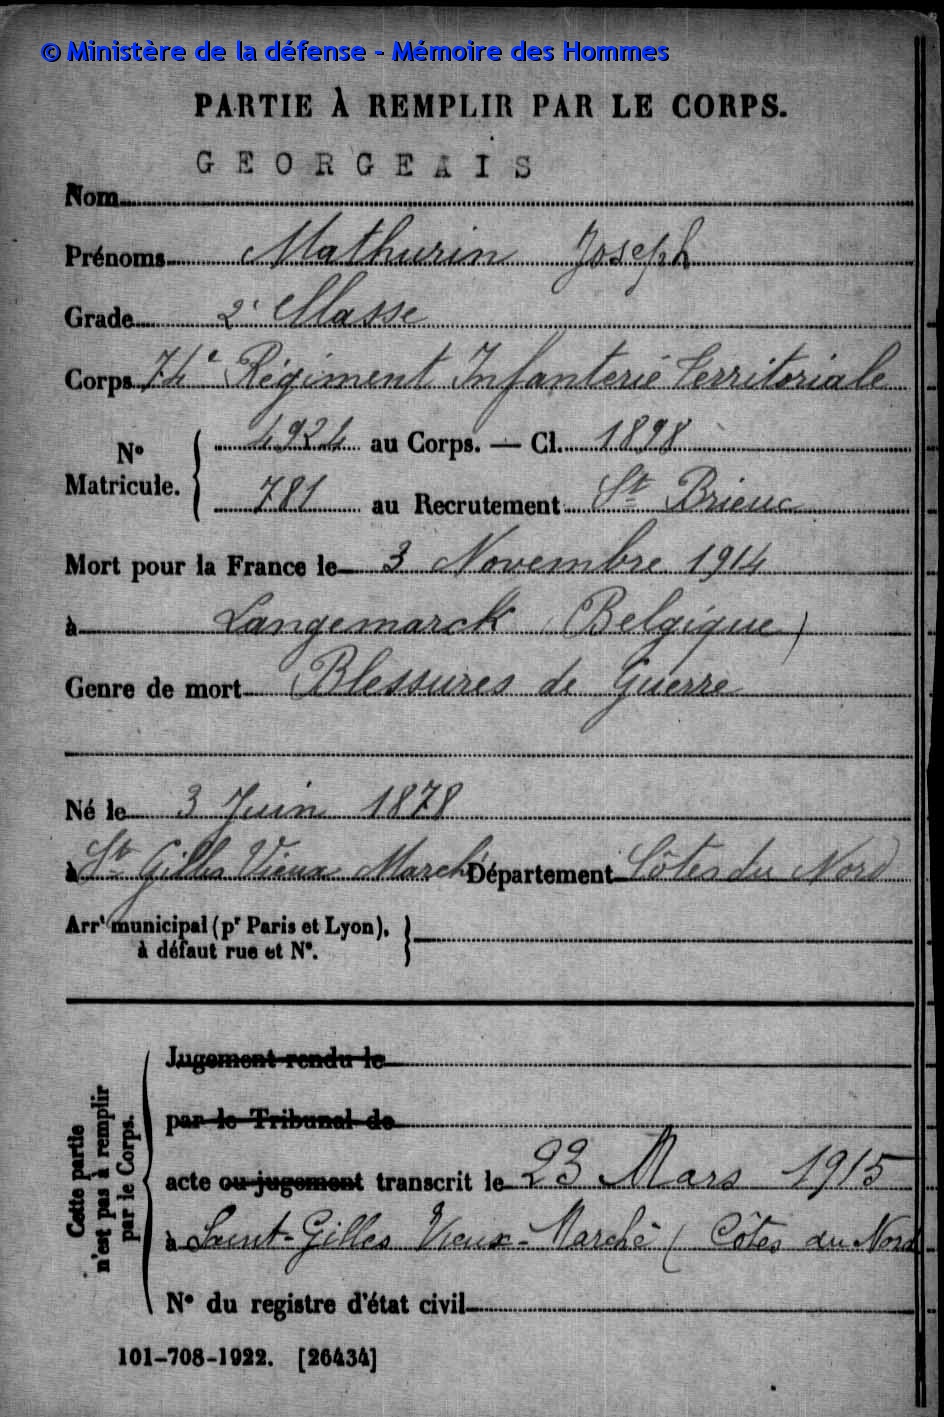 © Ministère de la défense - Mémoire des Hommes
PARTIE À REMPLIR PAR LE CORPS.
GEORGEAIS
Nom
Prénoms Mathurin Joseph
Grade 2e Classe
Corps 74e Régiment Infanterie Territoriale
No Matricule. { 4924 au Corps. — Cl. 1898
781 au Recrutement St Brieuc
Mort pour la France le 3 Novembre 1914
à Langemarck (Belgique)
Genre de mort Blessures de Guerre
Né le 3 Juin 1878
à St Gilles Vieux Marché Département Côtes du Nord
Arrt municipal (pr Paris et Lyon), }
à défaut rue et No.
Cette partie
n'est pas à remplir
par le Corps.
Jugement rendu le
par le Tribunal de
acte ou jugement transcrit le 23 Mars 1915
à Saint-Gilles Vieux-Marché (Côtes du Nord
No du registre d'état civil
101-708-1922. [26434]